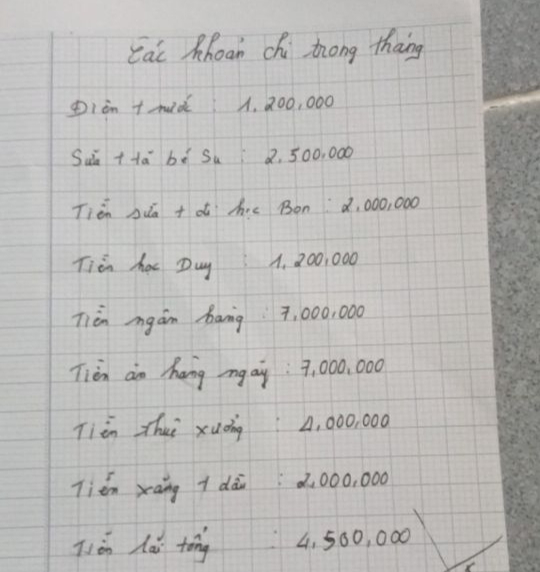 Các khoản chi trong tháng
Điện + nước : 1.200,000
Sữa + tã bé Su : 2.500,000
Tiền sữa + đi học Bon : 2,000,000
Tiền học Duy : 1.200,000
Tiền ngân hàng : 7,000,000
Tiền ăn hàng ngày : 7,000,000
Tiền thuê xưởng : 4,000,000
Tiền xăng + dầu : 2,000,000
Tiền lãi tổng : 4,500,000